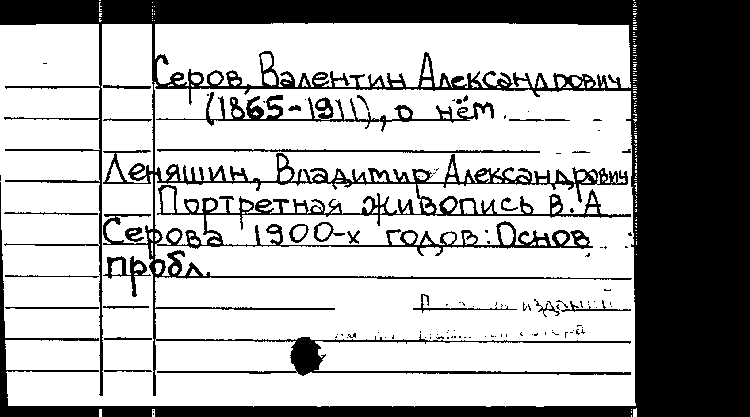 Серов, Валентин Александрович
(1865-1911), о нём.
Леняшин, Владимир Александрович
Портретная живопись В.А
Серова 1900-х годов: Основ
пробл.
изданий